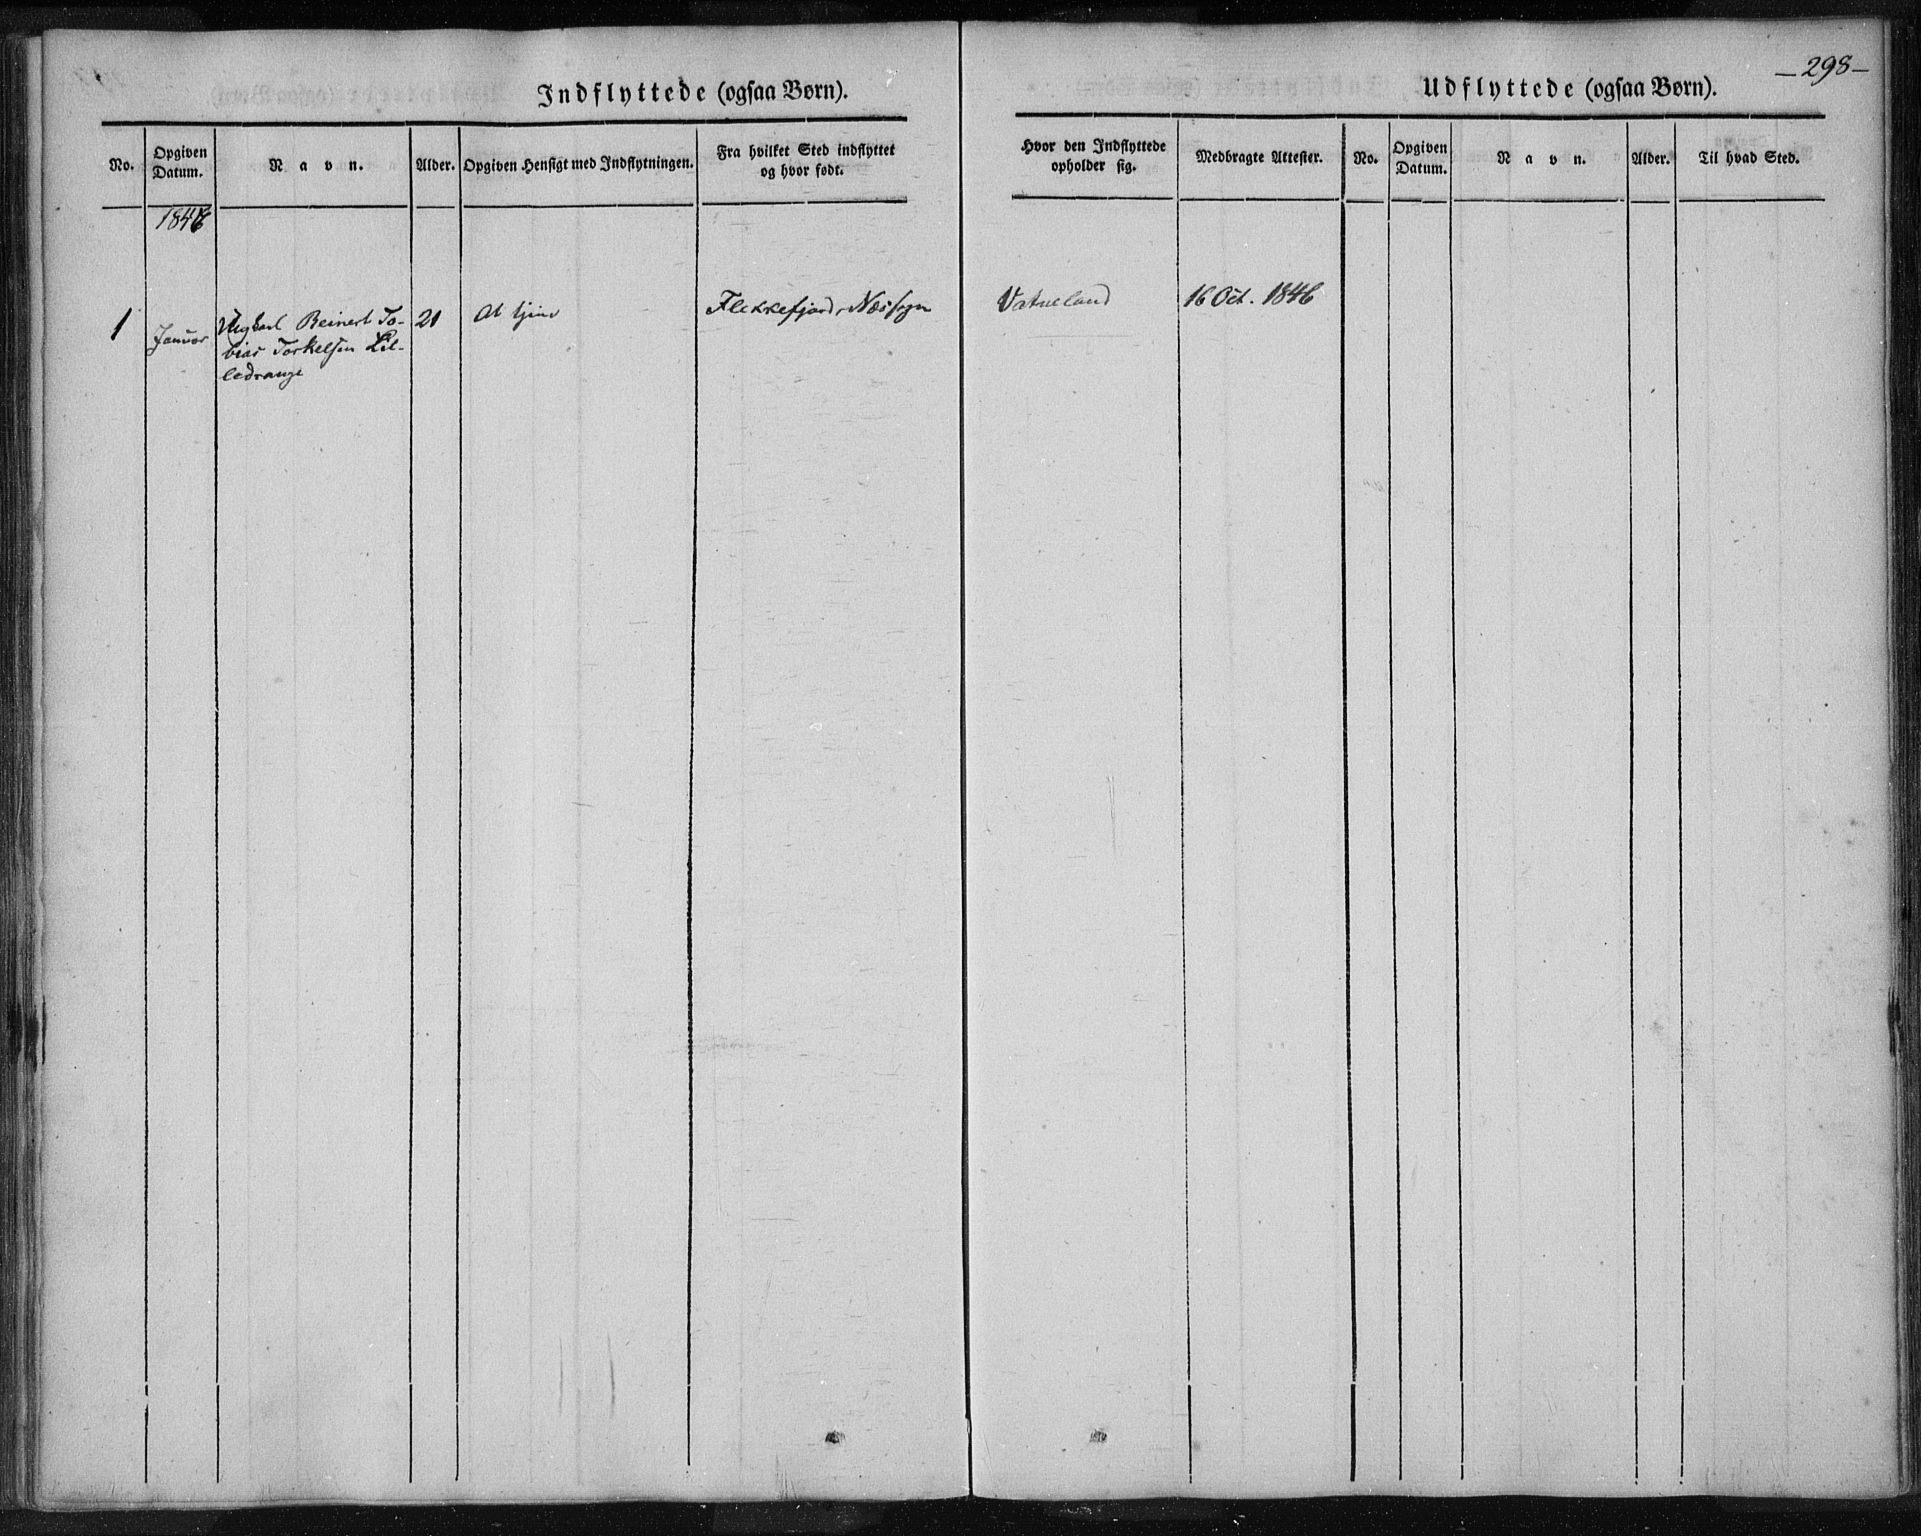 -298-
Indflyttede (ogsaa Børn).
Udflyttede (ogsaa Børn).
No.
Opgiven Datum.
Navn.
Alder.
Opgiven Hensigt med Indflytningen.
Fra hvilket Sted indflyttet og hvor født.
Hvor den Indflyttede opholder sig.
Medbragte Attester.
No.
Opgiven Datum.
Navn.
Alder.
Til hvad Sted.
1846
1
Januar
Ungkarl Beinert To-
bias Torkelsen Lil-
ledrange
21
At tjene
Flekkefjord, Næs sogn
Vatneland
16 Oct. 1846